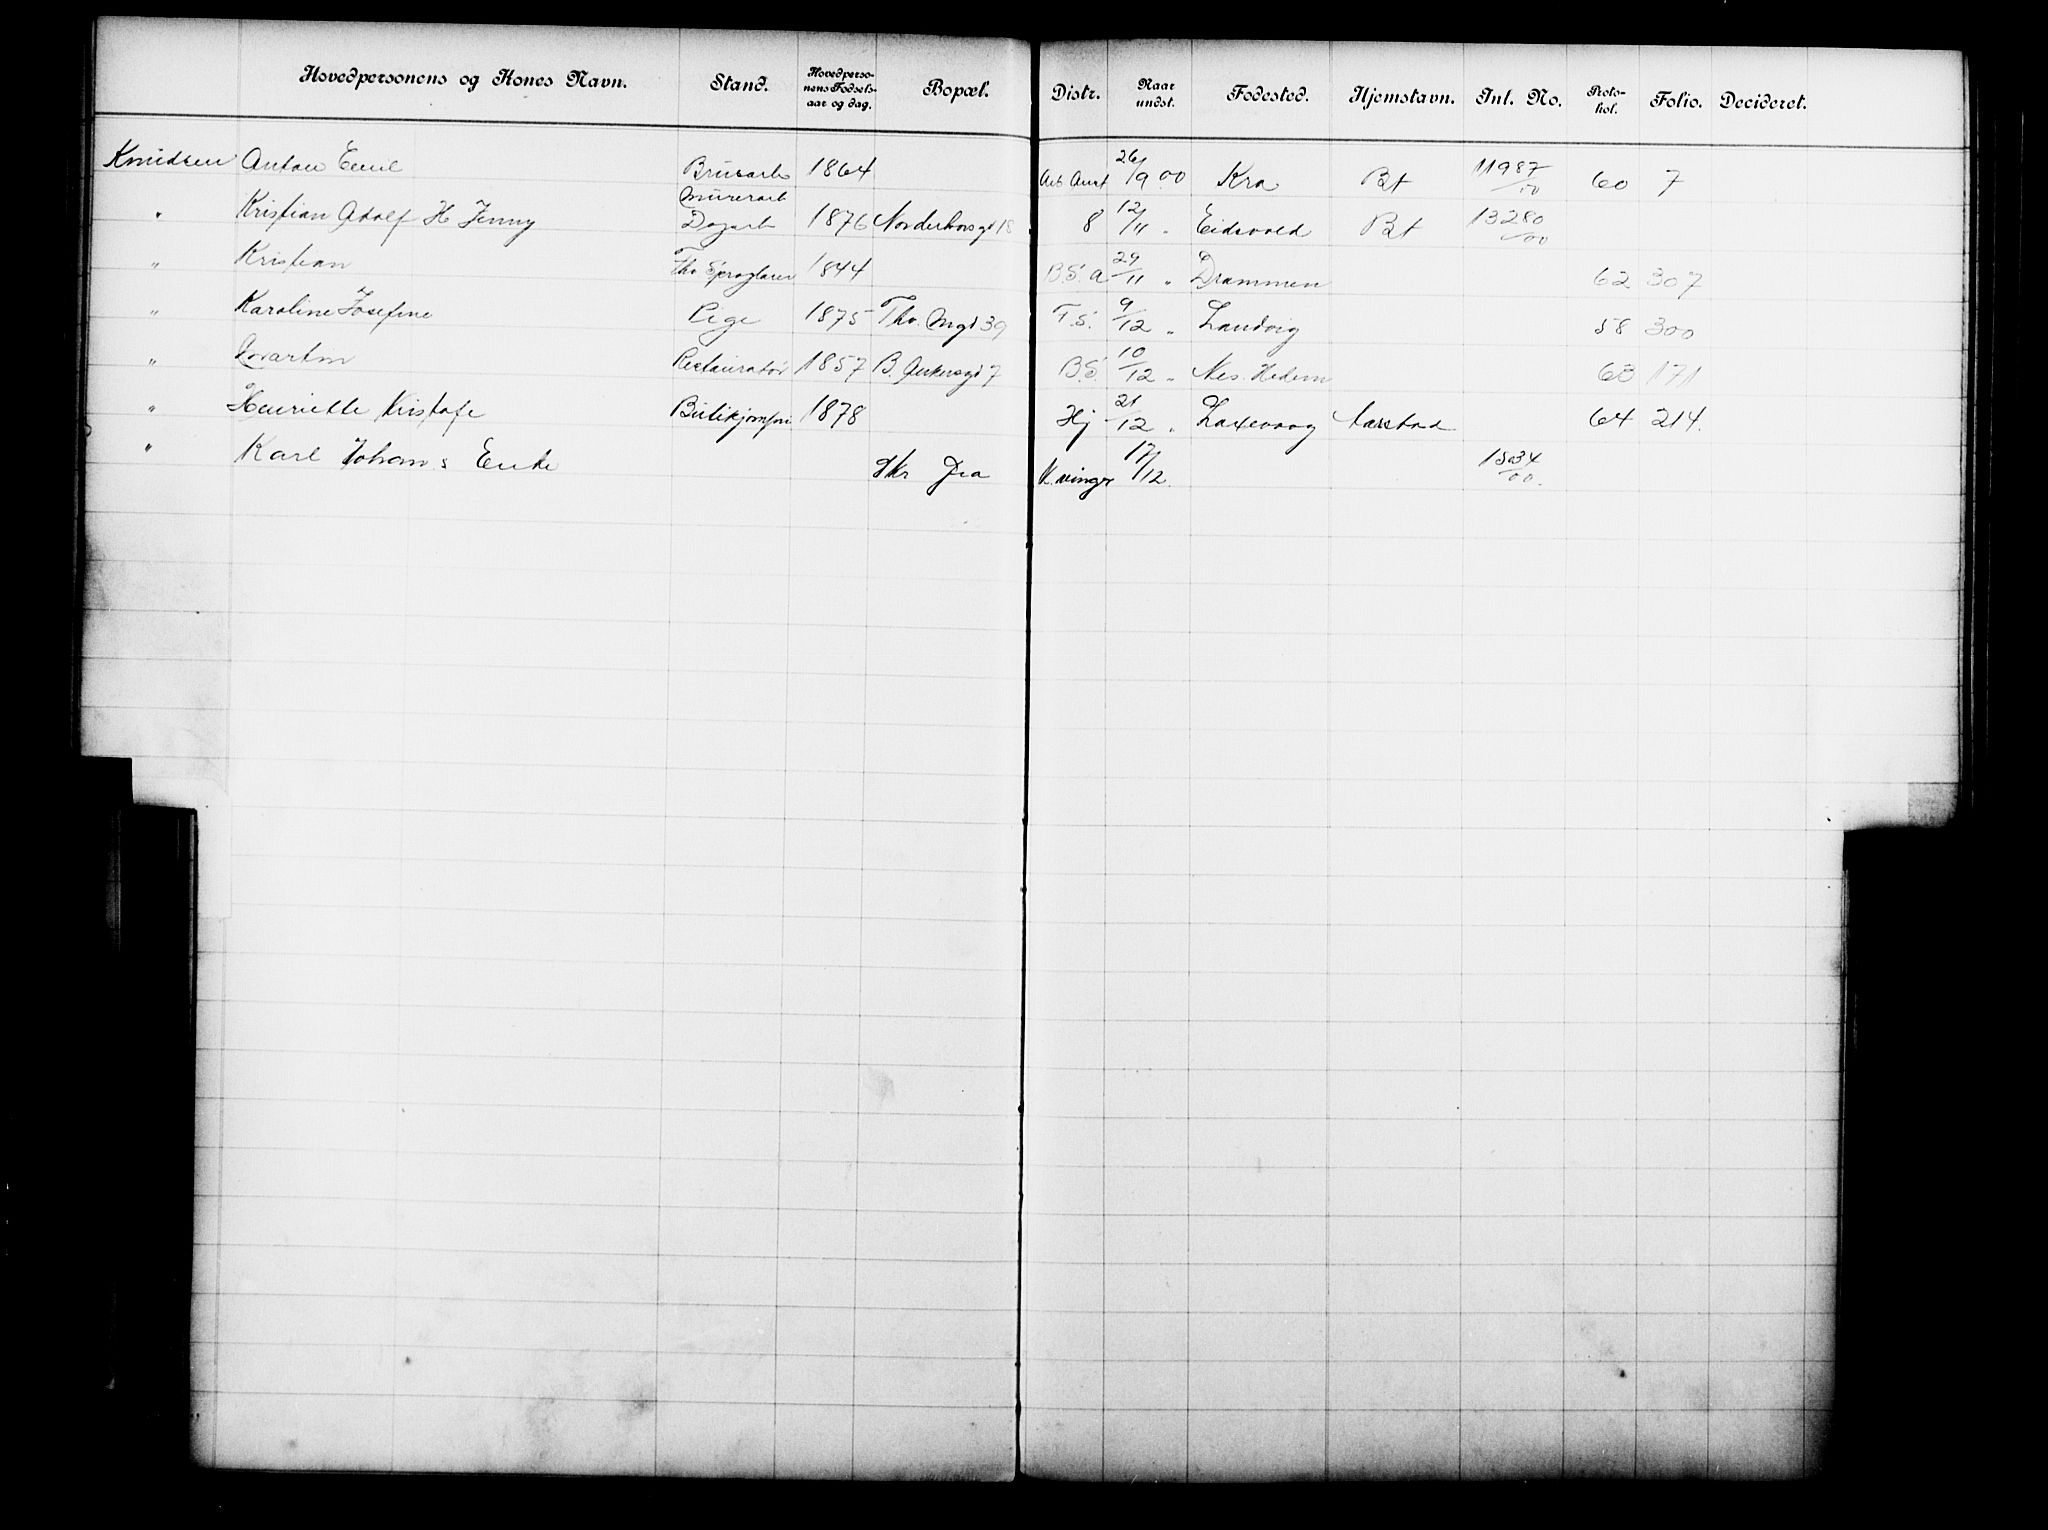 Hovedpersonens og Kones Navn. Stand. Hovedperso-nens Fødsels-aar og dag. Bopæl. Distr. Naar undst. Fødested. Hjemstavn. Inl. No. Proto-kol. Folio. Decideret.
Knudsen Anton Emil Brusarb 1864 Arb Anst 26/9 00 Kra Bt 11987/00 60 7
" Kristian Adolf H Jenny Murerarb Dagarb 1876 Nordenborsgd 18 8 12/11 " Eidsvold Bt 13280/00
" Kristian Fhv Sproglærer 1844 B.S. a 29/11 " Drammen 62 307
" Karoline Josefine Pige 1875 Thv. Mgd 39 T.S. 9/12 " Landvig 58 300
" Martin Restauratør 1857 B. Ankersgd 7 B.S. 10/12 " Nes. Hedem 63 171
" Henriette Kristofe Butikjomfru 1878 Hj 21/12 " Laxevaag Aarstad 64 214.
" Karl Johans Enke Skr Dra K.vinger 17/12. 15034/00.